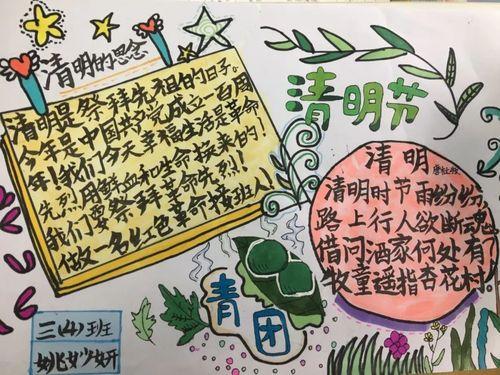 清明的思念
清明是祭拜先祖的日子。
今年是中国共产党成立一百周
年！我们今天幸福生活是革命
先烈用鲜血和生命换来的！
我们要祭拜革命先烈！
做一名红色革命接班人！
清明节
清明
清明时节雨纷纷，
路上行人欲断魂。
借问酒家何处有？
牧童遥指杏花村。
青团
三(4)班
姚妙妍